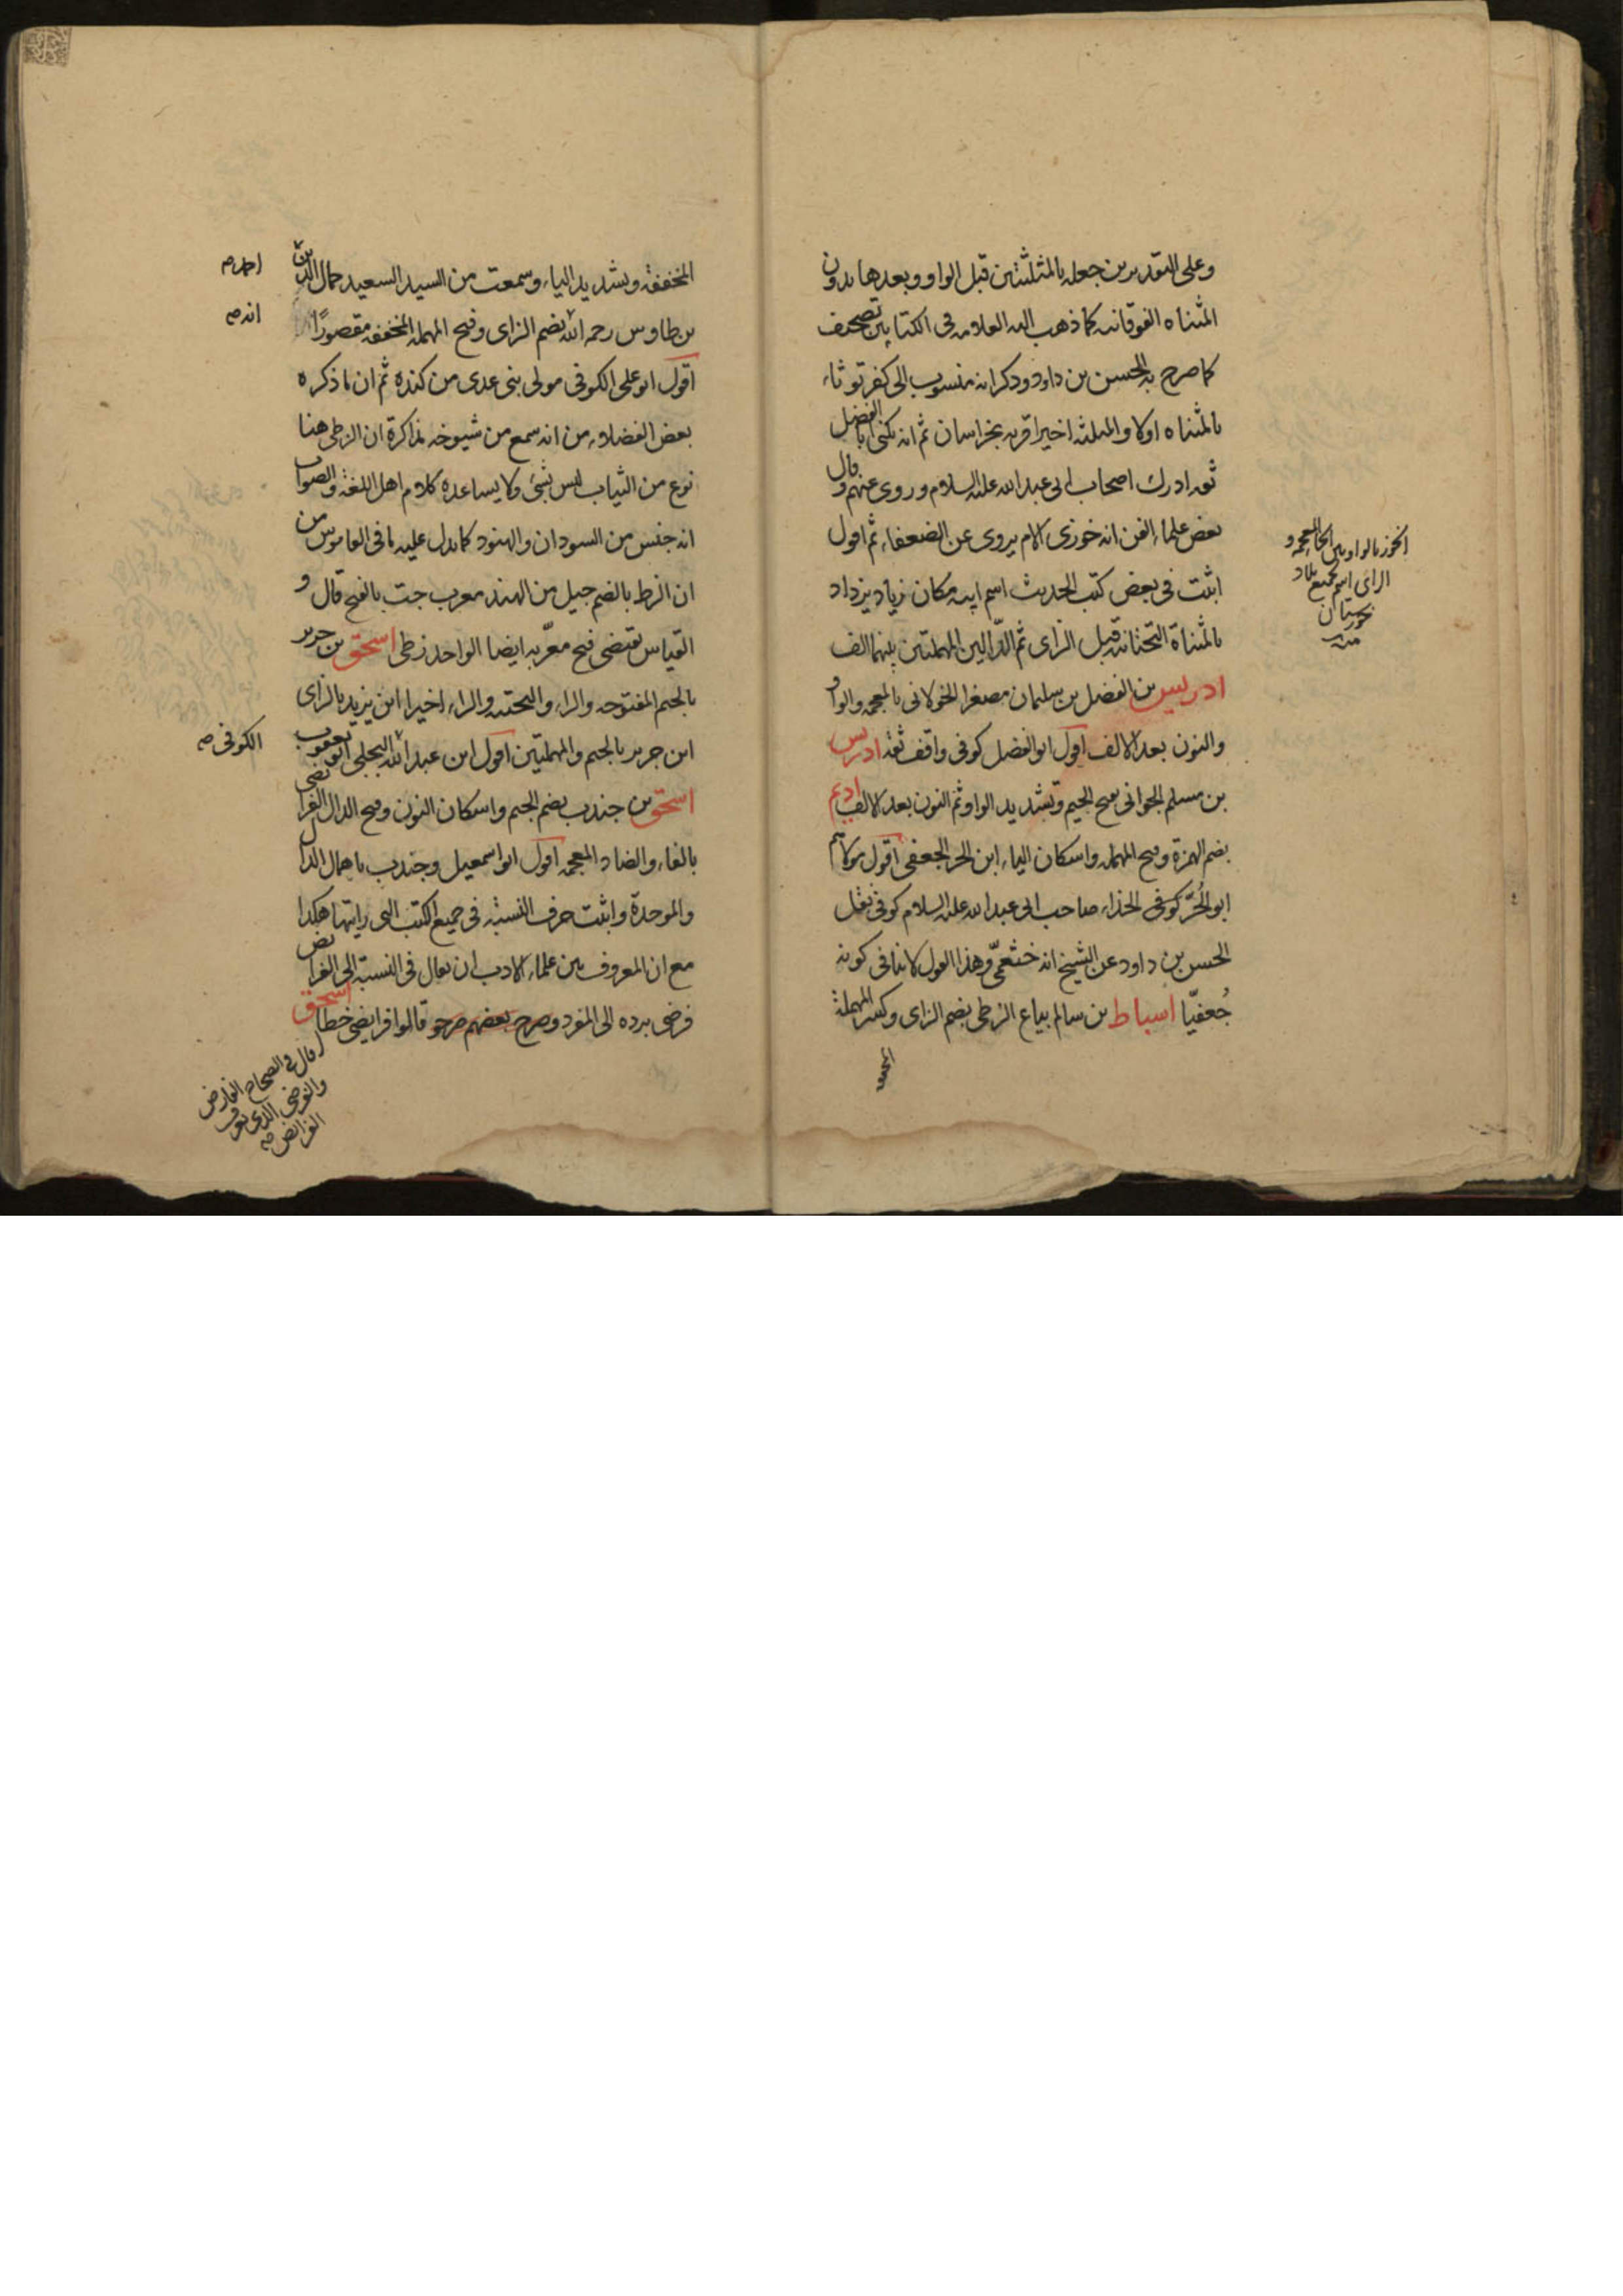 وعلى التقديرين جعله بالمثلثتين قبل الواو وبعدها بدون
المثناه الفوقانيه كما ذهب اليه العلامه فى الكتابين تصحيف
كما صرح به الحسن بن داود وذكر انه منسوب الى كفرتوثاء
بالمثناه اولا والمثلثه اخيرا قريه بخراسان ثم انه يكنى بالفضل
ثقه ادرك اصحاب ابى عبد الله عليه السلام وروى عنهم وقال
بعض علماء الفن انه خوزى الام يروى عن الضعفاء ثم اقول
اثبت فى بعض كتب الحديث اسم ابيه مكان زياد يزداد
بالمثناة التحتانيه قبل الزاى ثم الدالين المهملتين بينهما الف
ادريس بن الفضل بن سليمان مصغرا الخولانى بالمعجمه والواو
والنون بعد الالف اقول ابو الفضل كوفى واقف ثقه ادريس
بن مسلم الجوانى بفتح الجيم وتشديد الواو ثم النون بعد الالف اديم
بضم الهمزة وفتح المهمله واسكان الياء ابن الحر الجعفى اقول مولاهم
ابو الحُرّ كوفى الحذاء صاحب ابى عبد الله عليه السلام كوفى نقل
الحسن بن داود عن الشيخ انه خثعمىّ وهذا القول لا ينافى كونه
جُعفيّا اسباط بن سالم بياع الزطى بضم الزاى وكسر المهملة
الخوز بالواو بين الخاء المعجمه و
الزاى اسم لجميع بلاد
خوزستان
منه
المخففة وتشديد الياء وسمعت من السيد السعيد جمال الدين
بن طاوس رحمه الله بضم الزاى وفتح المهمله المخففه مقصورًا
اقول ابو على الكوفى مولى بنى عدى من كنده ثم ان ما ذكره
بعض الفضلاء من انه سمع من شيوخه مذاكرة ان الزطى هنا
نوع من الثياب ليس بشئ ولا يساعده كلام اهل اللغة والصواب
انه جنس من السودان والهنود كما يدل عليه ما فى القاموس من
ان الزط بالضم جيل من الهند معرب جت بالفتح قال و
القياس يقتضى فتح معرّبه ايضا الواحد زطى اسحق بن جرير
بالجيم المفتوحه والراء والتحتيه والراء اخيرا ابن يزيد بالزاى
ابن جرير بالجيم والمهملتين اقول ابن عبد الله البجلى ابو يعقوب
اسحق بن جندب بضم الجيم واسكان النون وفتح الدال الفرايضى
بالفاء والضاد المعجمه اقول ابو اسمعيل وجندب باهمال الدال
والموحدة واثبت حرف النسبة فى جميع الكتب التى رايتها هكذا
مع ان المعروف بين علماء الادب ان يقال فى النسبة الى الفرايض
فرضى برده الى المفرد وصرح بعضهم صرحو قالوا فرايضى خطا اسحق
احمد صح
انه صح
الكوفى صح
قال فى الصحاح الفارض
والفرضى الذى يعرف
الفرائض صح